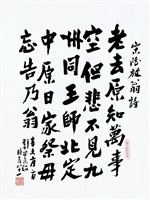 宋陆放翁诗
老去原知万事
空但悲不见九
州同王师北定
中原日家祭毋
忘告乃翁